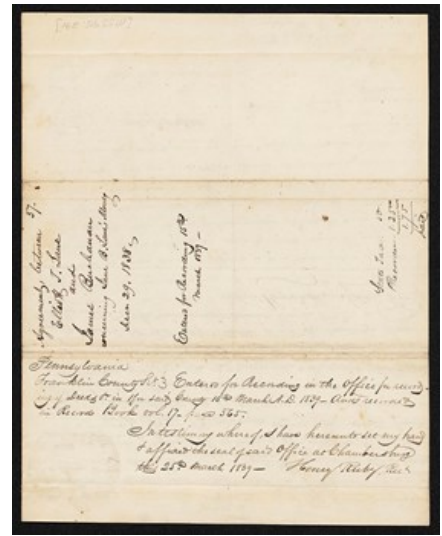 37.
Agreement between
Elliott T. Lane
and
James Buchanan
concerning Jane B. Lane's Money
Decr 29. 1838
Entered for Recording 18th
March 1839 —
State Tax 50
Recorder 1.25
1.75
paid
Pennsylvania
Franklin County Sct } Entered for Recording in the Office for record-
ing of Deeds &c in & for said County 18th March A.D. 1839 — And recorded
in Record Book vol. 17. page 565.
In testimony whereof, I have hereunto set my hand
& affixed the seal of said Office at Chambersburg
this 25th March 1839 — Henry Ruby, Recr